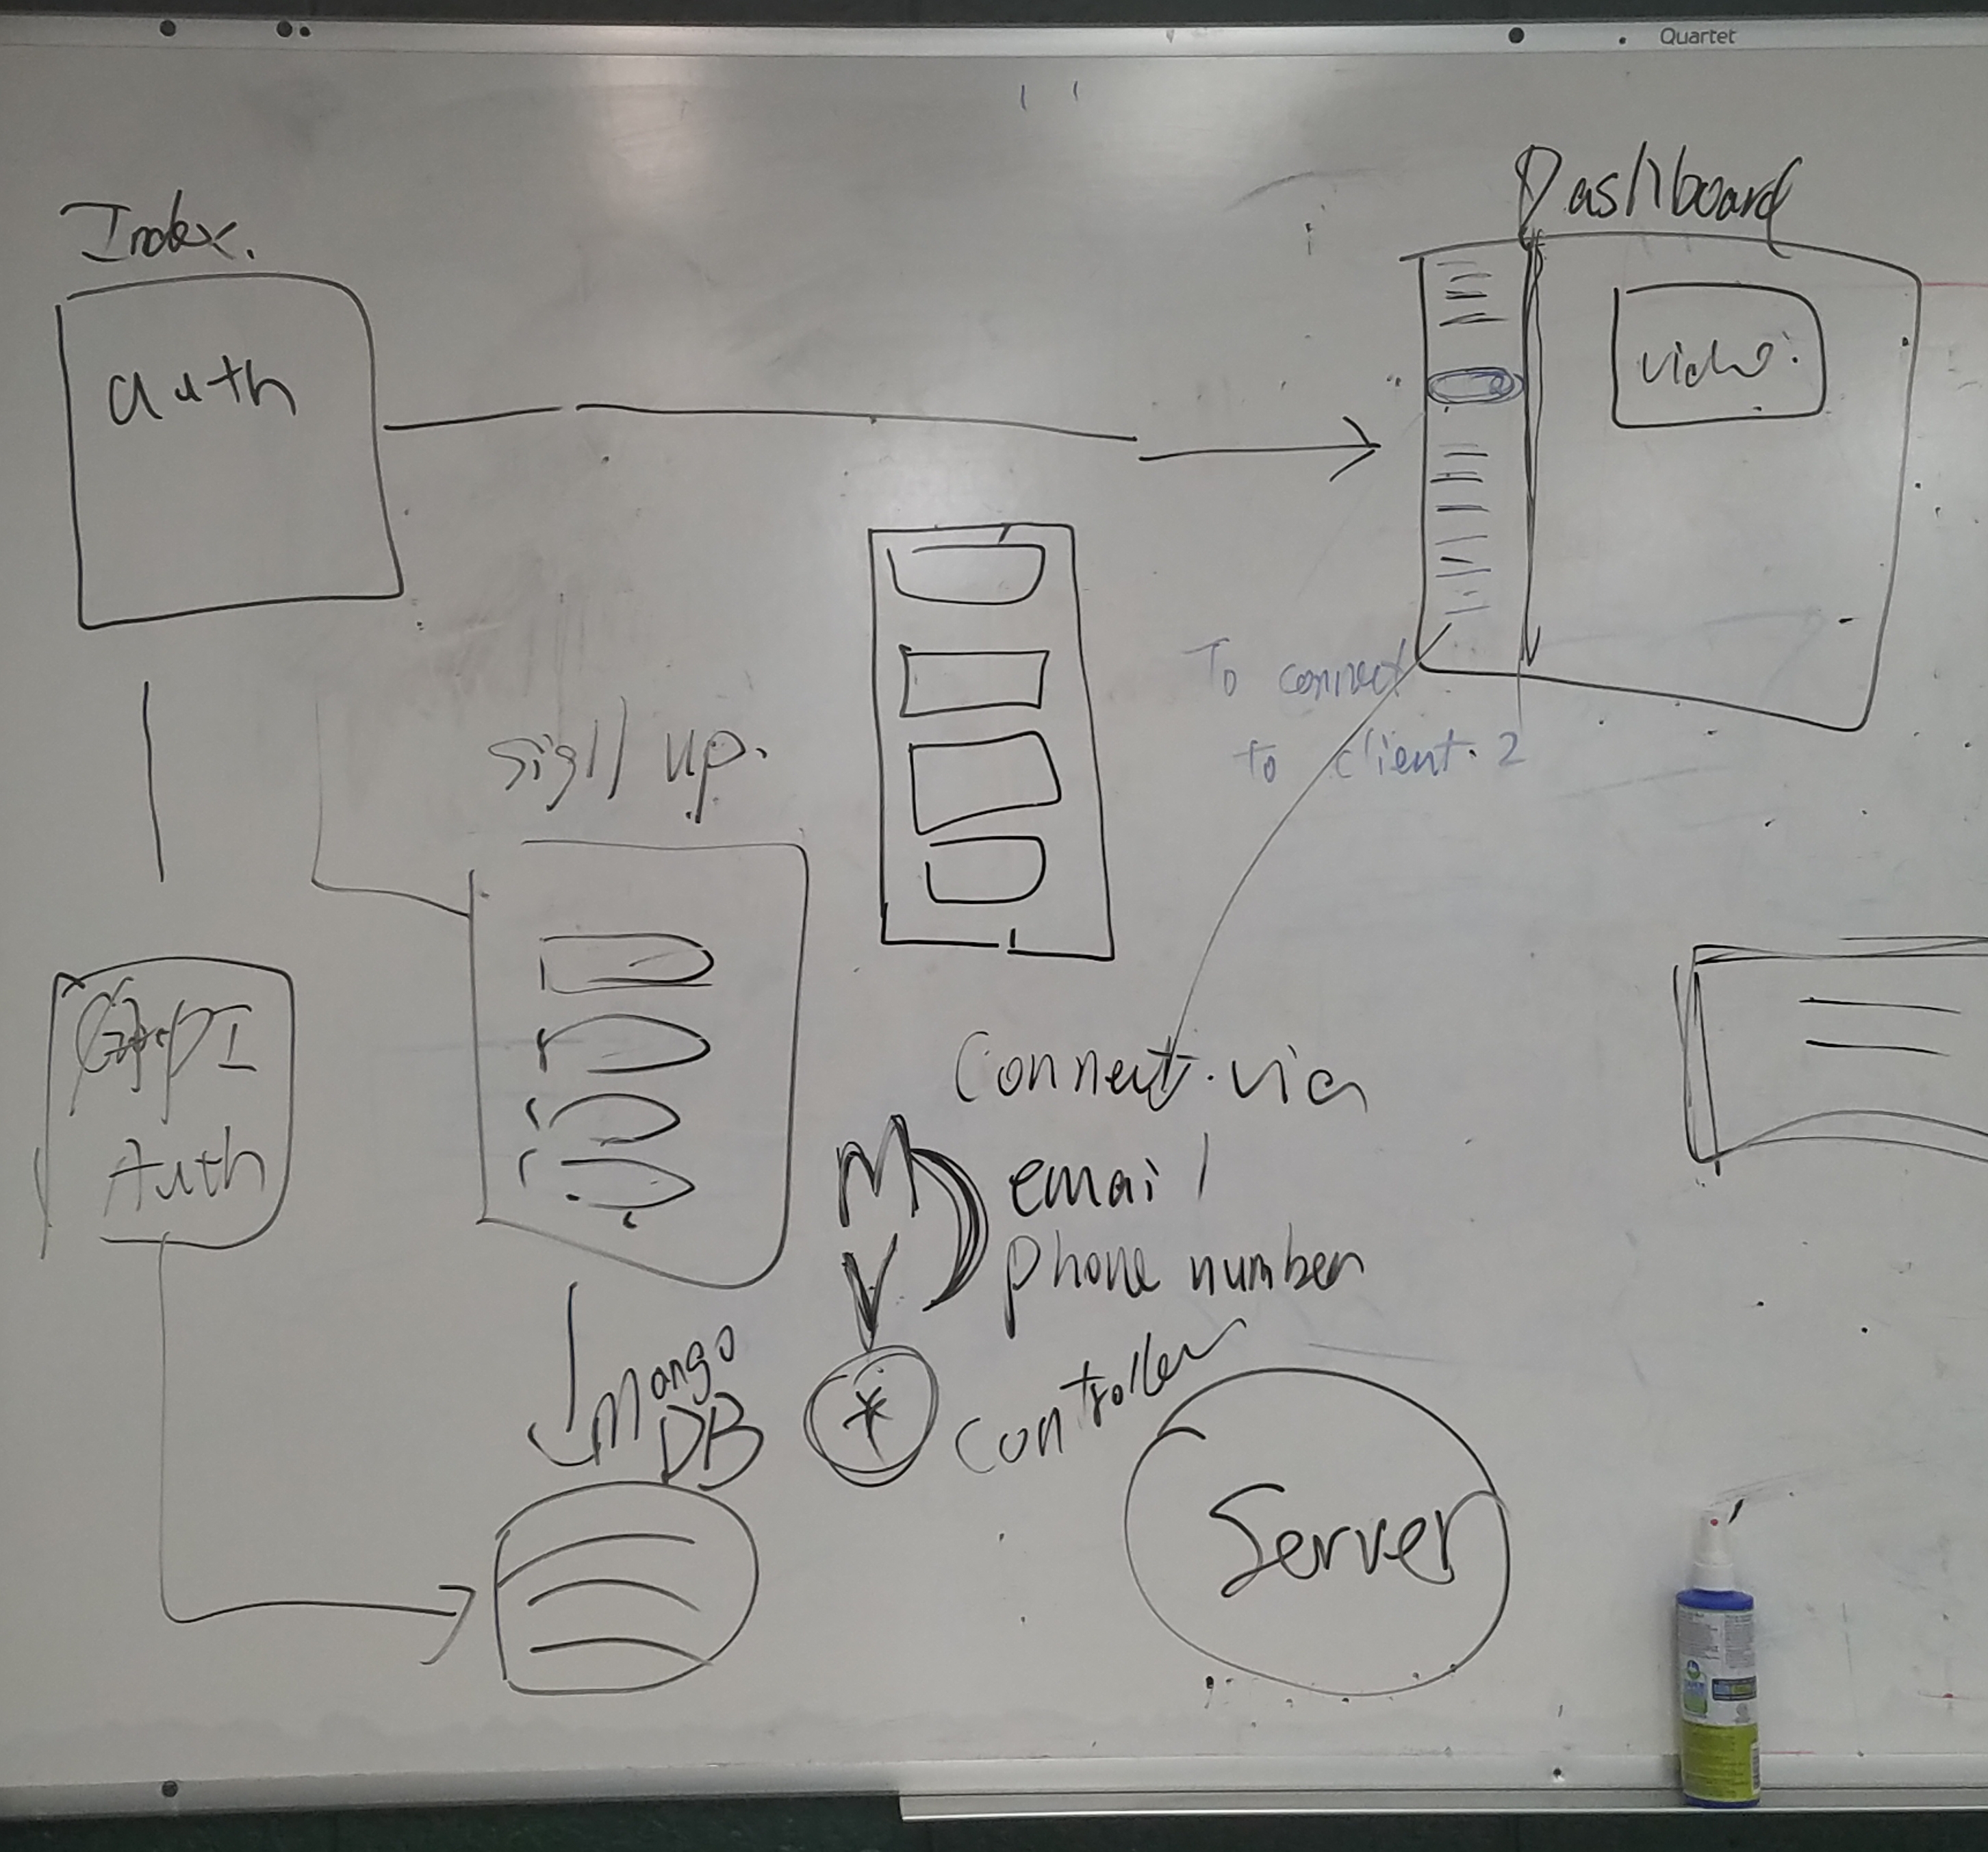 Quartet
Index.
Dashboard
auth
video.
To connect
to client. 2
sign up.
Auth
Connect. via
email
phone number
M
V
Controller
Mango
DB
Server